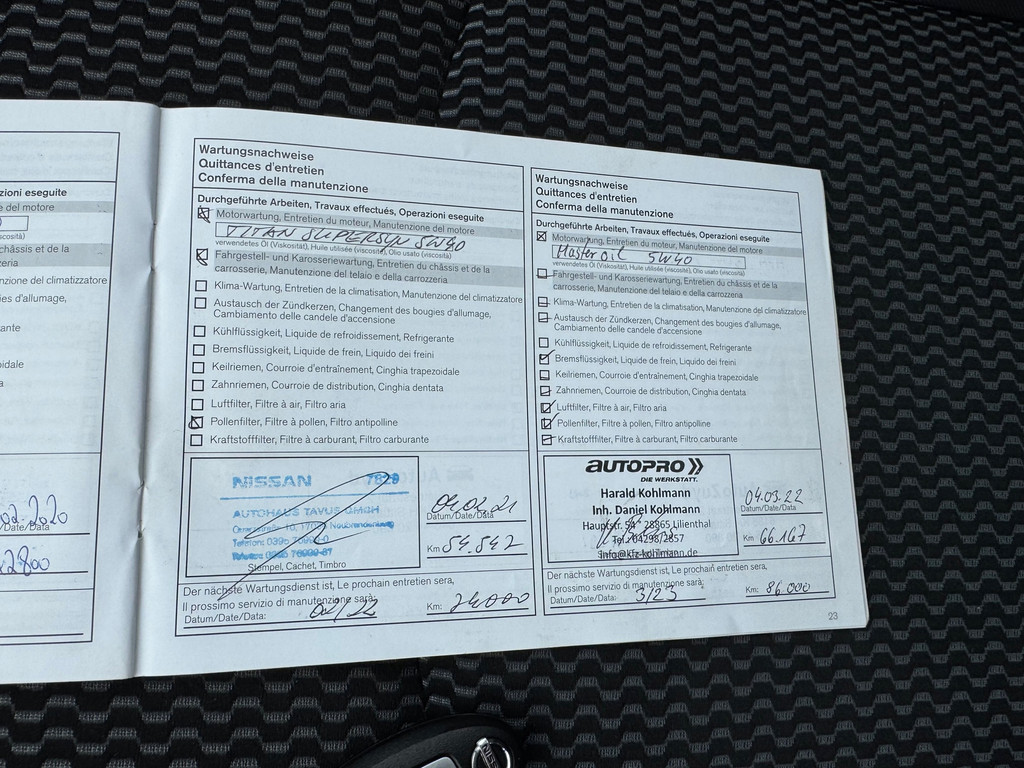 zioni eseguite
e del motore
iscosità)
châssis et de la
zeria
nzione del climatizzatore
ies d'allumage,
rante
oidale
a
02.2020
Date/Data
2800
Wartungsnachweise
Quittances d'entretien
Conferma della manutenzione
Durchgeführte Arbeiten, Travaux effectués, Operazioni eseguite
Motorwartung, Entretien du moteur, Manutenzione del motore
TITAN SUPERSYN 5W40
verwendetes Öl (Viskosität), Huile utilisée (viscosité), Olio usato (viscosità)
Fahrgestell- und Karosseriewartung, Entretien du châssis et de la
carrosserie, Manutenzione del telaio e della carrozzeria
Klima-Wartung, Entretien de la climatisation, Manutenzione del climatizzatore
Austausch der Zündkerzen, Changement des bougies d'allumage,
Cambiamento delle candele d'accensione
Kühlflüssigkeit, Liquide de refroidissement, Refrigerante
Bremsflüssigkeit, Liquide de frein, Liquido dei freini
Keilriemen, Courroie d'entraînement, Cinghia trapezoidale
Zahnriemen, Courroie de distribution, Cinghia dentata
Luftfilter, Filtre à air, Filtro aria
Pollenfilter, Filtre à pollen, Filtro antipolline
Kraftstofffilter, Filtre à carburant, Filtro carburante
NISSAN 7829
AUTOHAUS TAVUS GMBH
Neubrandenburg
Telefon: 0395
Stempel, Cachet, Timbro
Datum/Date/Data
Km 54.542
Der nächste Wartungsdienst ist, Le prochain entretien sera,
Il prossimo servizio di manutenzione sarà:
Datum/Date/Data: 02/22
Km: 74000
Wartungsnachweise
Quittances d'entretien
Conferma della manutenzione
Durchgeführte Arbeiten, Travaux effectués, Operazioni eseguite
Motorwartung, Entretien du moteur, Manutenzione del motore
Masteroil 5W40
verwendetes Öl (Viskosität), Huile utilisée (viscosité), Olio usato (viscosità)
Fahrgestell- und Karosseriewartung, Entretien du châssis et de la
carrosserie, Manutenzione del telaio e della carrozzeria
Klima-Wartung, Entretien de la climatisation, Manutenzione del climatizzatore
Austausch der Zündkerzen, Changement des bougies d'allumage,
Cambiamento delle candele d'accensione
Kühlflüssigkeit, Liquide de refroidissement, Refrigerante
Bremsflüssigkeit, Liquide de frein, Liquido dei freini
Keilriemen, Courroie d'entraînement, Cinghia trapezoidale
Zahnriemen, Courroie de distribution, Cinghia dentata
Luftfilter, Filtre à air, Filtro aria
Pollenfilter, Filtre à pollen, Filtro antipolline
Kraftstofffilter, Filtre à carburant, Filtro carburante
AUTOPRO
DIE WERKSTATT.
Harald Kohlmann
Inh. Daniel Kohlmann
Hauptstr. 54 28865 Lilienthal
Tel.: 04298/2857
info@kfz-kohlmann.de
04.03.22
Datum/Date/Data
Km 66.167
Der nächste Wartungsdienst ist, Le prochain entretien sera,
Il prossimo servizio di manutenzione sarà:
Datum/Date/Data: 3/23
Km: 86.000
23